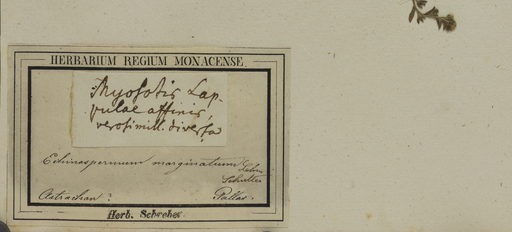 HERBARIUM REGIUM MONACENSE.
Myosotis Lap-
pulae affinis,
verosimill. diversa
Echinospermum marginatum Lehm.
Astrachan? Pallas.
Herb. Schreber